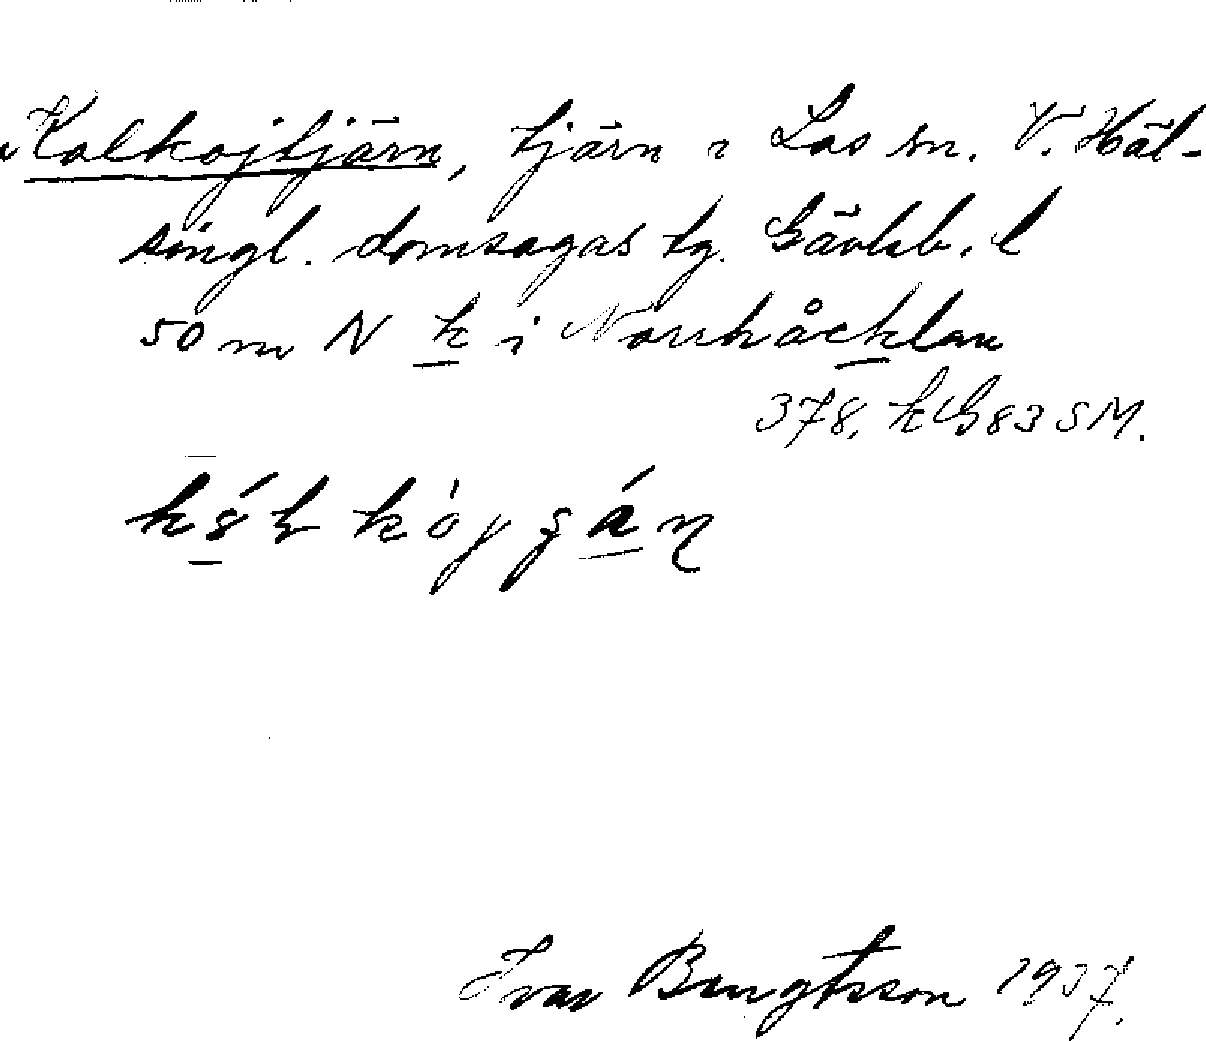 Kolkojtjärn, tjärn i Los sn. V. Häl-
singl. domsagas tg. Gävleb. l
50 m N k i Norrhåcklan
378. k G 83 SM.
Ivar Bengtsson 1937.